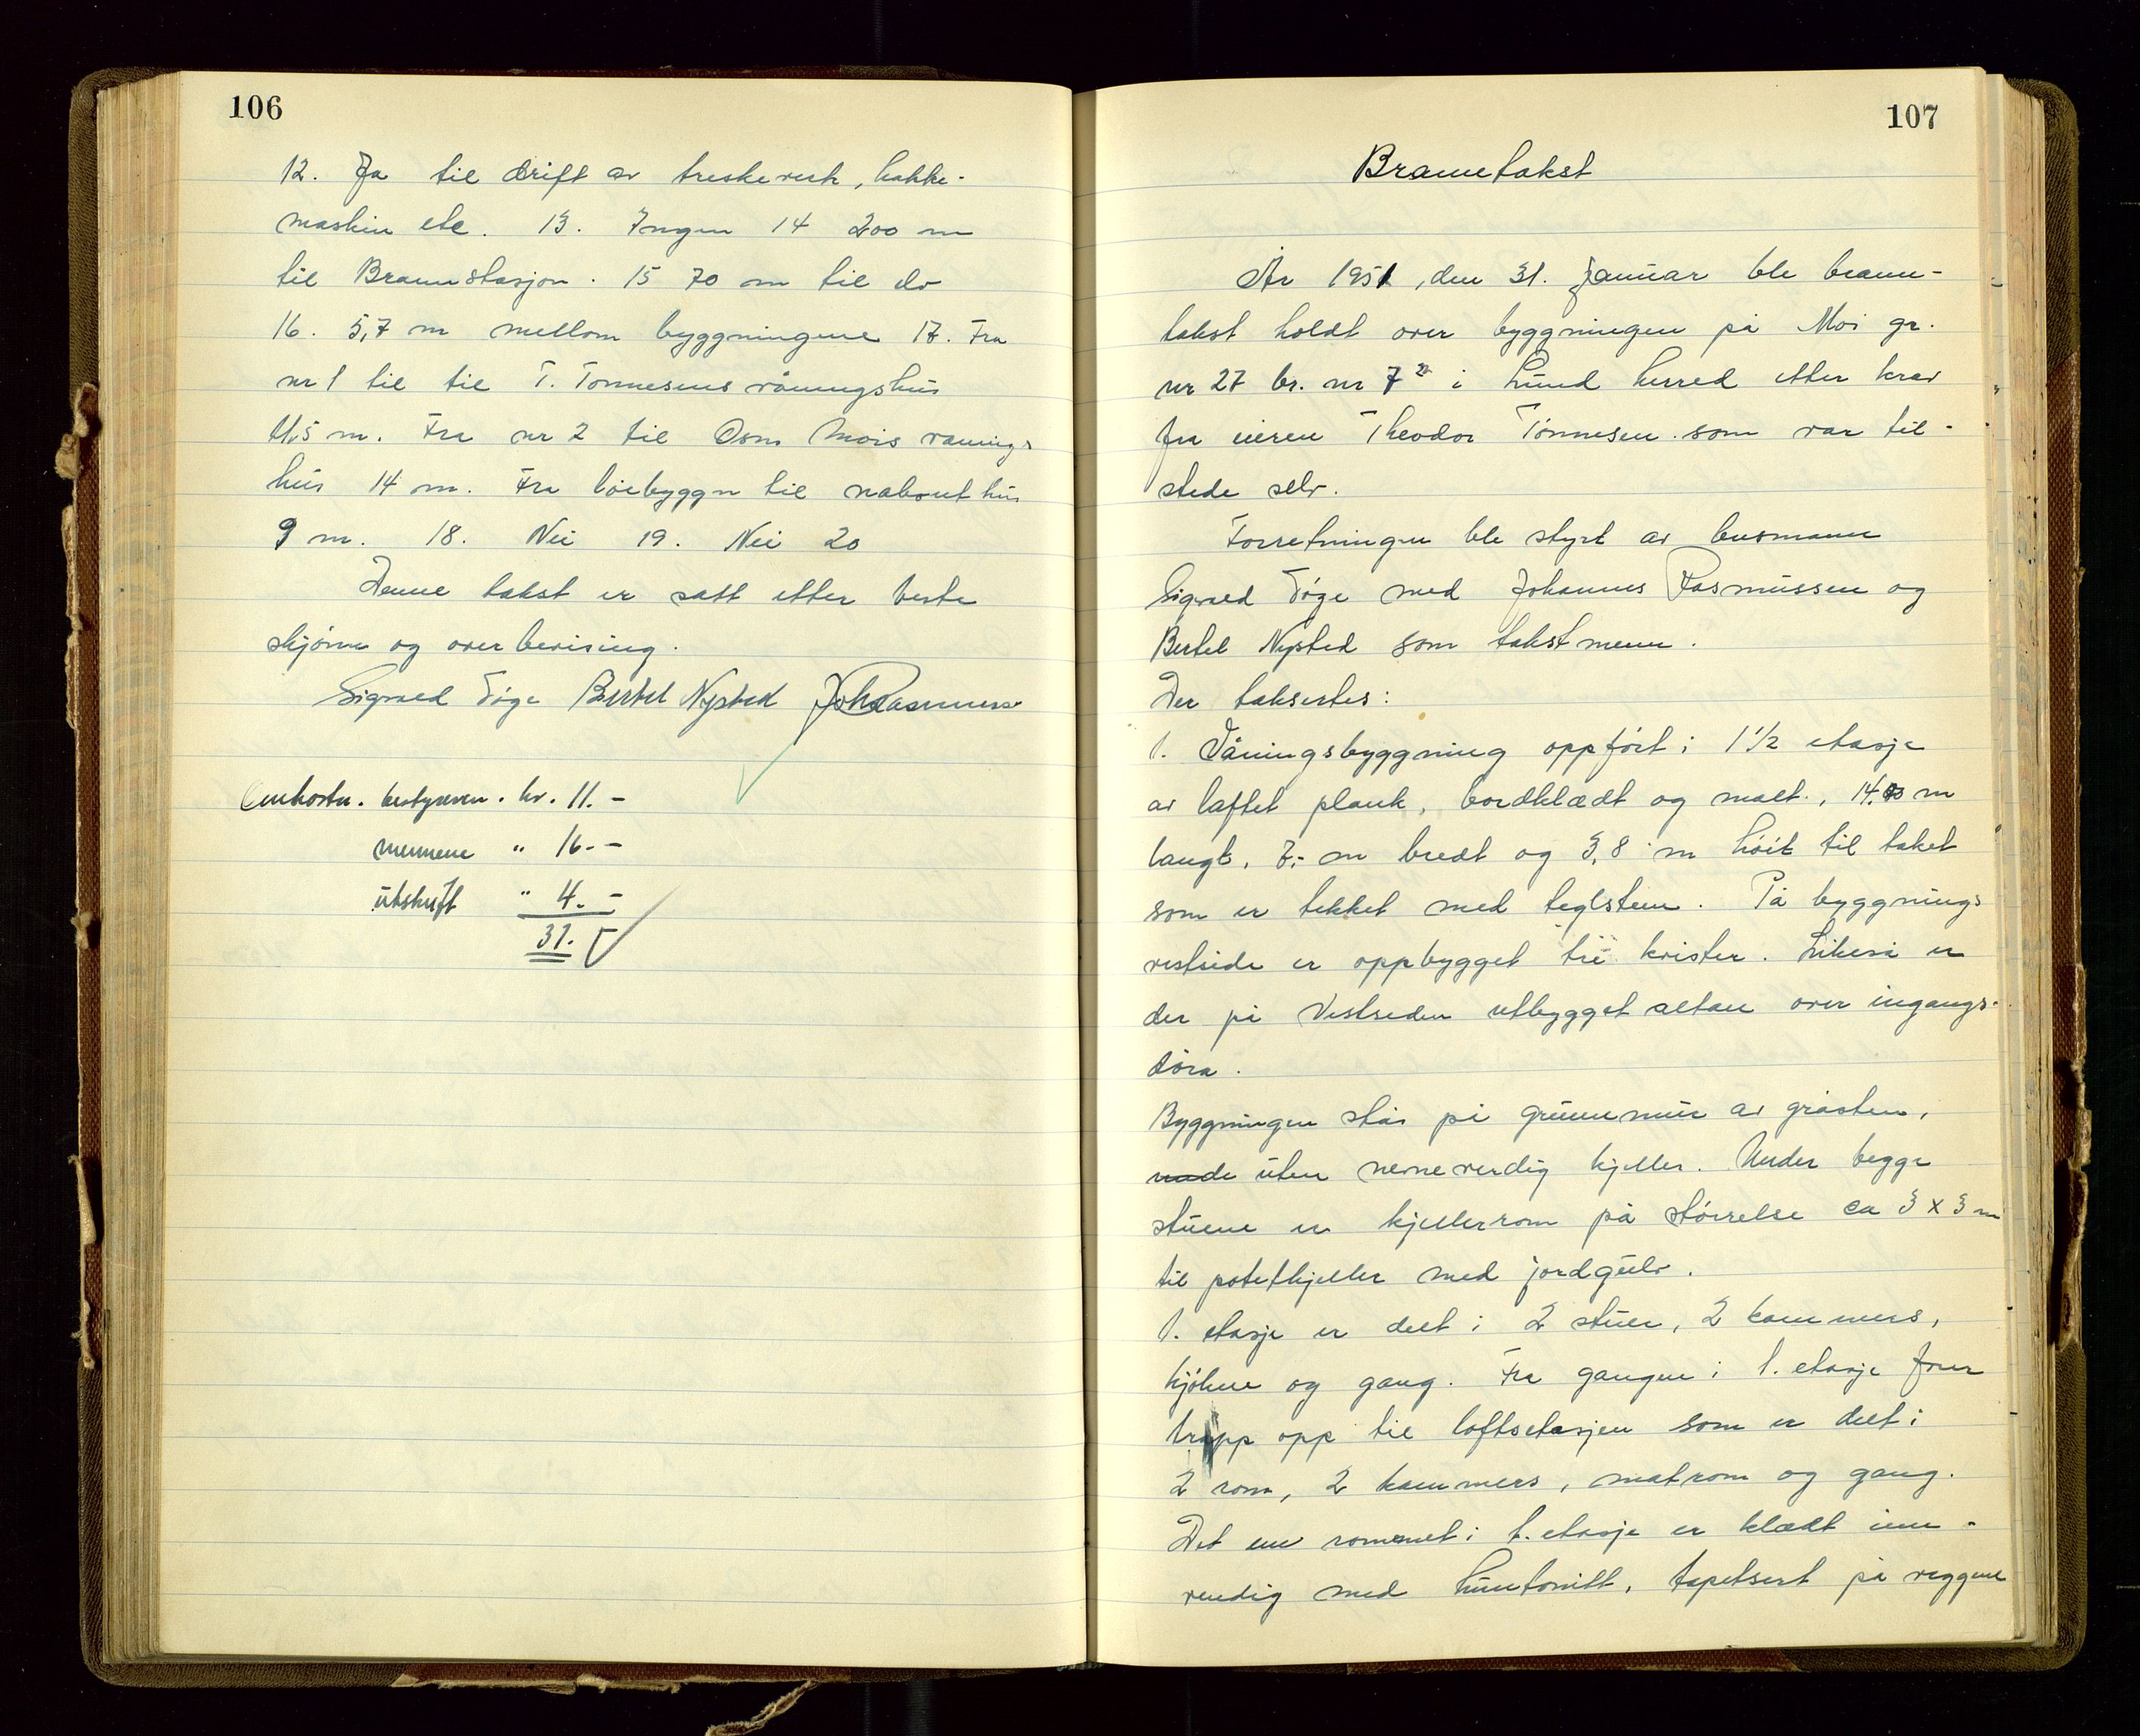 106
12. Ja til drift av treskeverk, hakke-
maskin etc. 13. Ingen 14 200 m
til Brannstasjon. 15 70 m til do
16. 5,7 m mellom byggningene 17. Fra
nr 1 til til T. Tønnesens våningshus
11,5 m. Fra nr 2 til Osm Mois vånings
hus 14 m. Fra løebyggn til nabouthus
9 m. 18. Nei 19. Nei 20
Denne takst er satt etter beste
skjønn og overbevising.
Sigvald Tøge Bertel Nysted Joh Rasmussen
Omkostn. bestyreren. kr. 11. -
mennene " 16. -
utskrift " 4. -
31. -
107
Branntakst
År 1951, den 31. januar ble brann-
takst holdt over byggningen på Moi gr.
nr 27 br. nr 7 i Lund herred etter krav
fra eieren Theodor Tønnesen som var til-
stede selv.
Forretningen ble styrt av lensmann
Sigvald Tøge med Johannes Rasmussen og
Bertel Nysted som takstmenn.
Der taksertes:
1. Våningsbyggning oppført i 1 1/2 etasje
av laftet plank, bordklædt og malt., 14, m
langt, 7,- m bredt og 3,8 m høit til taket
som er tekket med teglsten. På byggnings
vestside er oppbygget tre kvister. Likeså er
der på Vestsiden utbygget altan over ingangs-
døra.
Byggningen står på grunnmur av gråsten,
uten nevneverdig kjeller. Under begge
stuene er kjellerrom på størrelse ca 3 x 3 m
til potetkjeller med jordgulv.
1. etasje er delt i 2 stuer, 2 kammers,
kjøkne og gang. Fra gangen i 1. etasje fører
trapp opp til loftsetasjen som er delt i
2 rom, 2 kammers, matrom og gang.
Det ene rommet i 1. etasje er klædt inn-
vendig med huntonitt, tapetsert på veggene